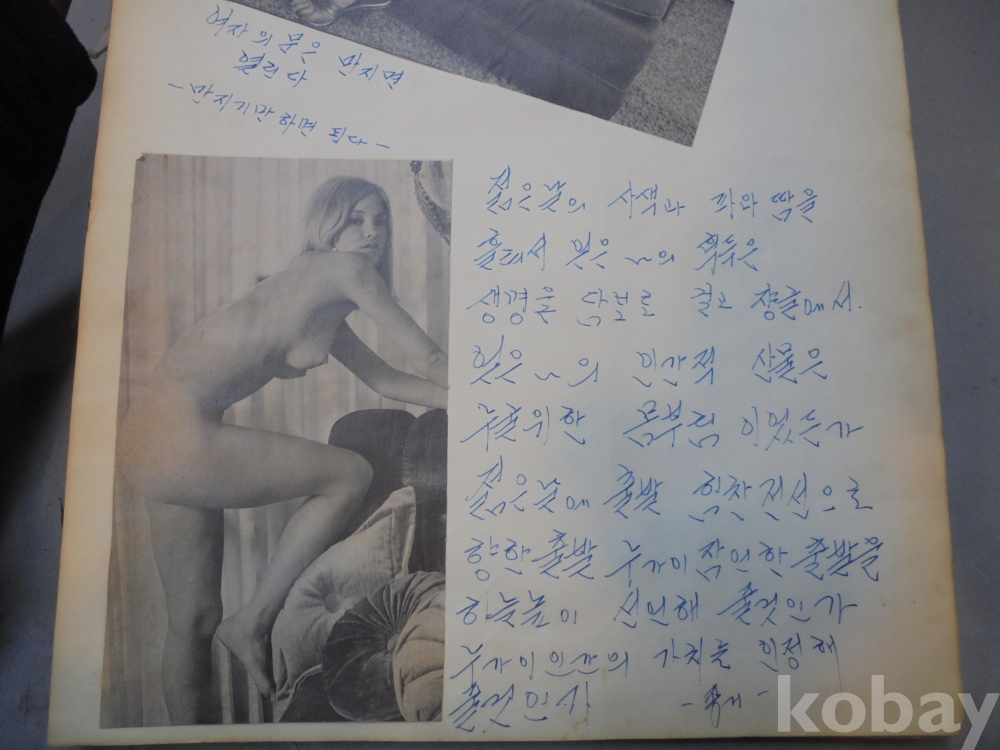 여자의 문은 만지면
열린다
- 만지기만하면 된다 -
젊은날의 사색과 피와 땀을
흘려서 얻은 나의 획득은
생명을 담보로 걸고 정글에서
얻은 나의 인간적 산물은
누굴위한 몸부림 이었는가
젊은날에 출발 힘찬전선으로
향한출발 누가이잠인한출발을
하늘높이 선언해 줄것인가
누가이인간의 가치를 인정해
줄것인가
kobay